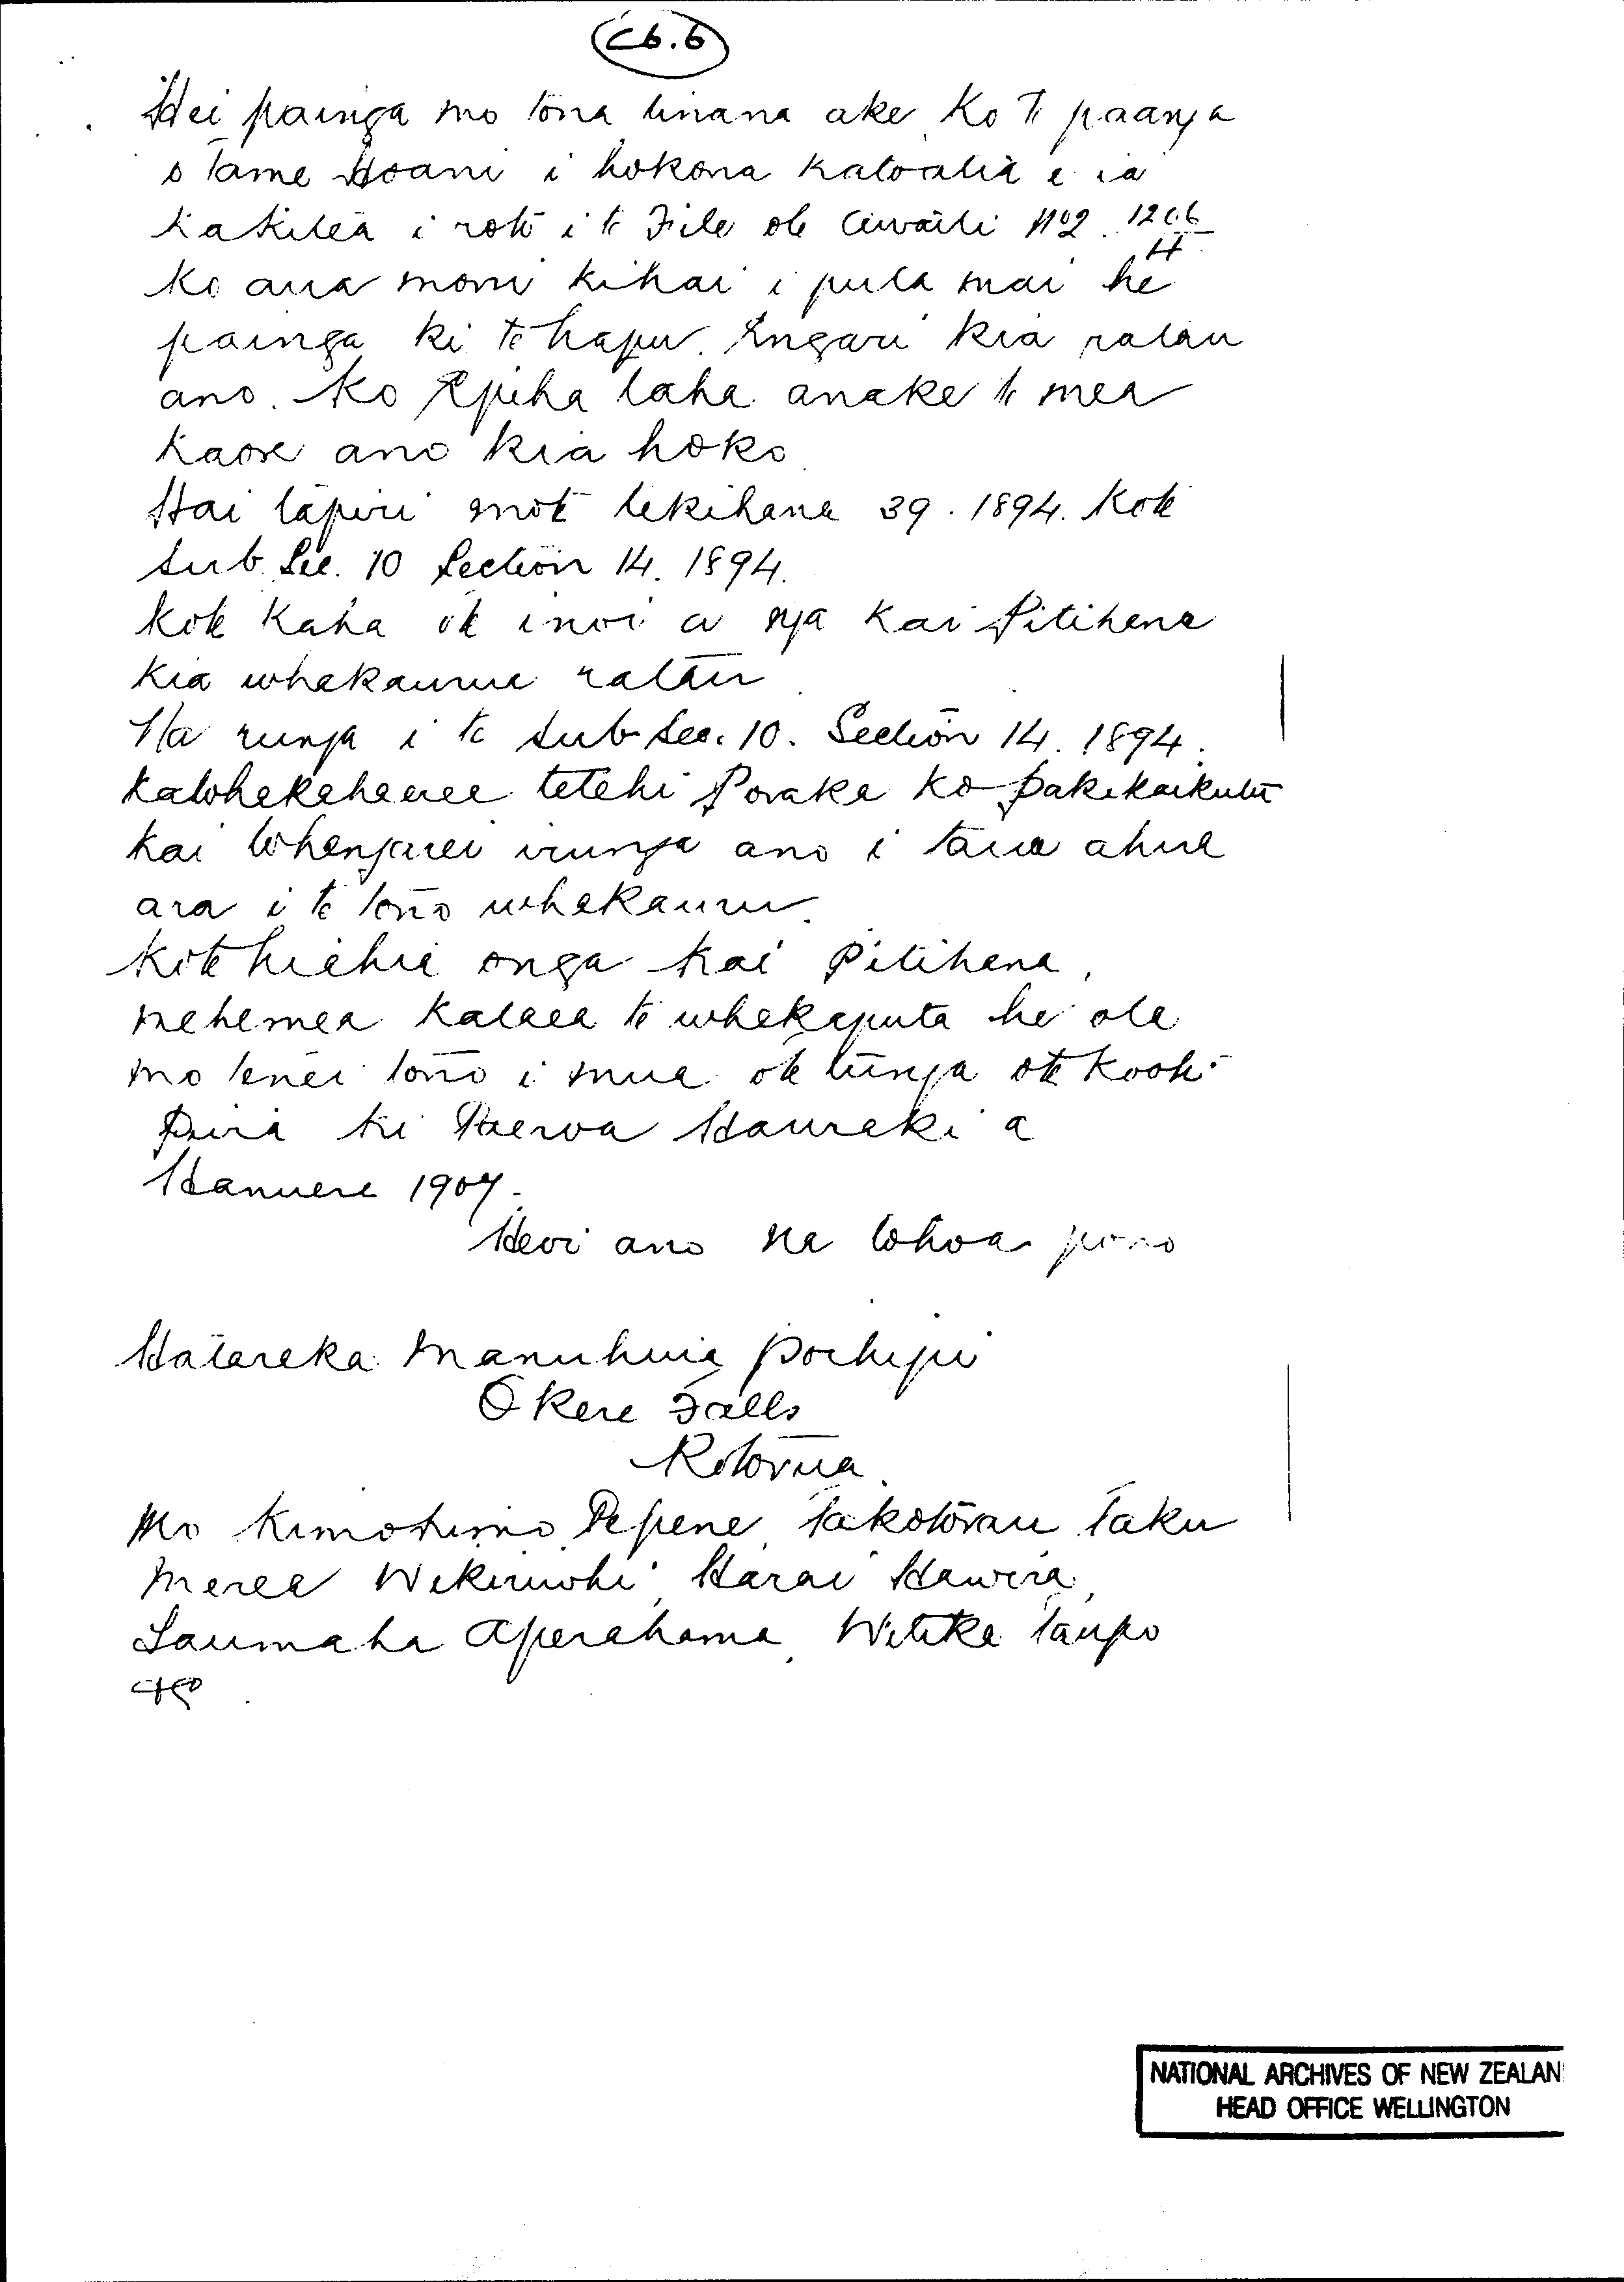 C6.6
Hei painga mo tona tinana ake Ko te paanga
o Tame Hoani i hokona katoatia e ia
Kakitea i roto i te File ote Awaiti No2. 1206/4.
Ko aua moni kihai i puta mai he
painga ki te hapu. Engari kia ratau
ano. Ko Epiha taha anake te mea
Kaore ano kia hoko.
Hai tapiri mote tekihana 39. 1894. Kote
Sub. Sec. 10 Section 14. 1894.
Kote Kaha ote inoi a nga Kai Pitihana
Kia whakauru ratau.
Na runga i te Sub Sec. 10. Section 14. 1894.
Katohekeheuea tetehi Poraka ko Pakikaikutu
Kai tohengarei irunga ano i taua ahua
ara i te tono whakauru.
Kote hiahia onga Kai Pitihana,
mehemea Kataea te whakaputa he ota
mo tenei tono i mua ote tunga ote Kooti
Pira ki Paeroa Hauraki a
Hanuere 1907.
Heoi ano na tohoa pono
Hatareka Manuhuia Poihipi
Okere Falls
Rotorua.
Mo Kimohimo Pepene, Takotorau Taku
Merea Wikiriwhi, Harai Hawira,
Taumaha Aperahama, Witika Taupo
NATIONAL ARCHIVES OF NEW ZEALAN
HEAD OFFICE WELLINGTON